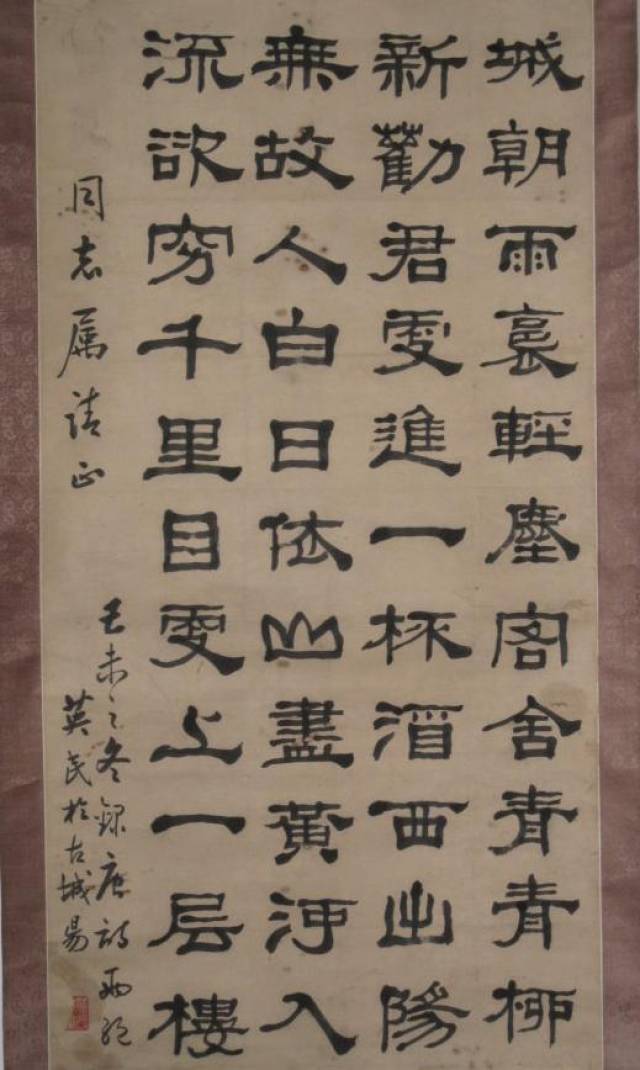 城朝雨裛輕塵客舍青青柳
新勸君更進一杯酒西出陽
無故人白日依山盡黃河入
流欲穷千里目更上一层樓
同志属請正
己未之冬録唐詩両絕
英民於古城易